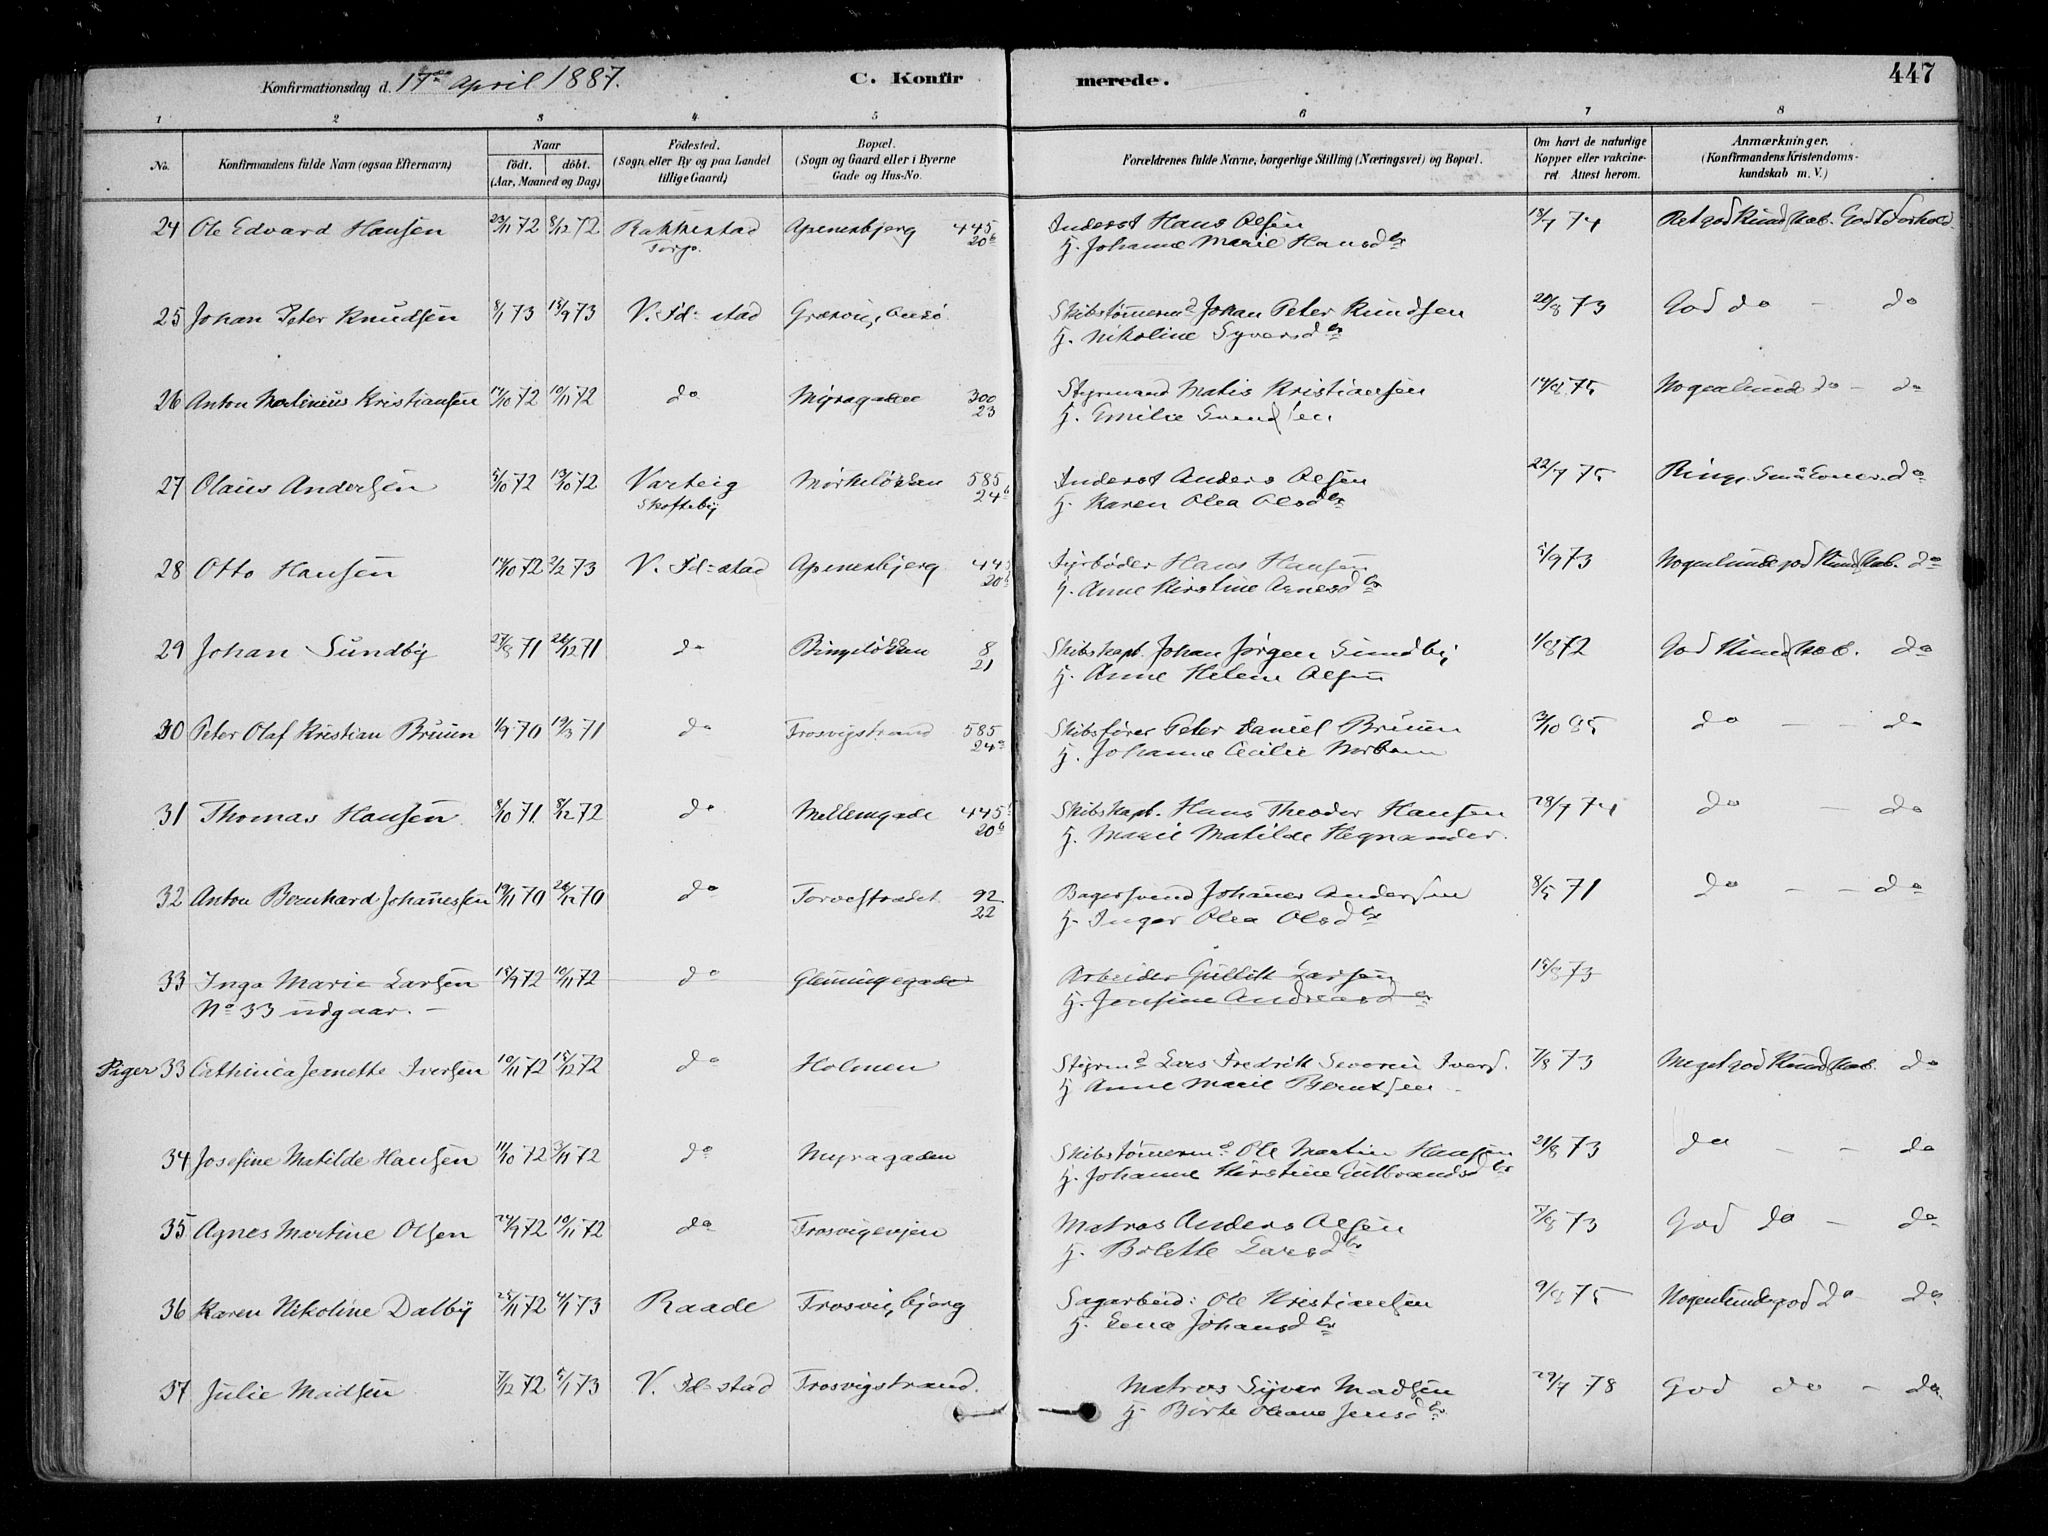 Konfirmationsdag d. 17de April 1887. C. Konfirmerede. 447
1 2 3 4 5 6 7 8
No. Konfirmandens fulde Navn (ogsaa Efternavn) Naar födt. döbt. (Aar, Maaned og Dag) Födested. (Sogn eller By og paa Landet tillige Gaard) Bopæl. (Sogn og Gaard eller i Byerne Gade og Hus-No. Forældrenes fulde Navne, borgerlige Stilling (Næringsvei) og Bopæl. Om havt de naturlige Kopper eller vakcineret Attest herom. Anmærkninger. (Konfirmandens Kristendomskundskab m. V.)
24 Ole Edvard Hansen 23/11 72 8/12 72 Rakkestad Apenesbjerg 445 Inderst Hans Olsen 18/7 74 Retgod Kundskab. Godt Forhold.
Torp. 20b H. Johanne Marie Hansdtr
25 Johan Peter Knudsen 8/1 73 13/9 73 V. Fd=stad Græsvig, Onsö Skibstømmermd Johan Peter Knudsen 20/8 73 God do - do
H. Nikoline Syversdtr
26 Anton Matinius Kristiansen 14/10 72 10/11 72 do Myragaden 300 Styrmand Matis Kristiansen 14/8 75 Nogenlunde do - do
23 H. Emilie Svendsen
27 Olaus Andersen 5/10 72 13/10 72 Varteig Mörkelökken 585 Inderst Anders Olsen 22/7 75 Ringe. Små Evner. do
Skofteby 24b H. Karen Olea Olsdtr
28 Otto Hansen 14/10 72 2/2 73 V. Fd=stad Apenesbjerg 445 Fyrbøder Hans Hansen 5/9 73 Nogenlunde god Kundskab. do
20b H. Anne Kirstine Arnesdtr
29 Johan Sundby 27/8 71 26/12 71 do Bingeløkken 8 Skibskapt. Johan Jørgen Sundby 1/8 72 God Kundskab. do
21 H. Anne Helene Olsen
30 Peter Olaf Kristian Bruun 1/9 70 19/3 71 do Trosvigstrand 585 Skibsfører Peter Daniel Bruun 3/10 85 do - - do
24a H. Johanne Cecilie
31 Thomas Hansen 8/10 71. 8/12 72 do Mellemgade 445 Skibskapt. Hans Theodor Hansen 28/7 74 do - do
20b H. Marie Matilde Hegnander.
32 Anton Bernhard Johannessen 19/11 70 26/12 70 do Torvestrædet 92 Bagersvend Johannes Andersen 8/5 71 do - - do
22 H. Inger Olea Olsdtr
33 Inga Marie Larsen 18/9 72 10/11 72 do Glemmingegade Arbeider Gullik Larsen 15/8 73
No 33 udgaar. - H. Josefine Andreasdtr
Piger 33 Cathinca Jeanette Iversen 10/11 72 15/12 72 do Holmen Styrmd Lars Fredrik Severin Ivers. 7/8 73 Meget god Kundskab. do
H. Anne Marie Berntsen
34 Josefine Matilde Hansen 11/10 72 3/11 72 do Myragaden Skibstømmermd Ole Martin Hansen 21/8 73 do - - do
H. Johanne Kirstine Gulbrandsdtr
35 Agnes Martine Olsen 24/9 72 10/11 72 do Trosvigveien Matros Anders Olsen 7/8 73 God do - do
H. Bolette Larsdtr
36 Karen Nikoline Dalby 25/11 72 4/1 73 Raade Trosvigbjerg Sagarbeid: Ole Kristiansen 9/8 75 Nogenlunde god do - do
H. Lena Johansdtr
37 Julie Madsen 7/12 72 5/1 73 V. Fd=stad Trosvigstrand. Matros Syver Madsen 29/7 78 God do - do
H. Birte Oleane Jensdtr